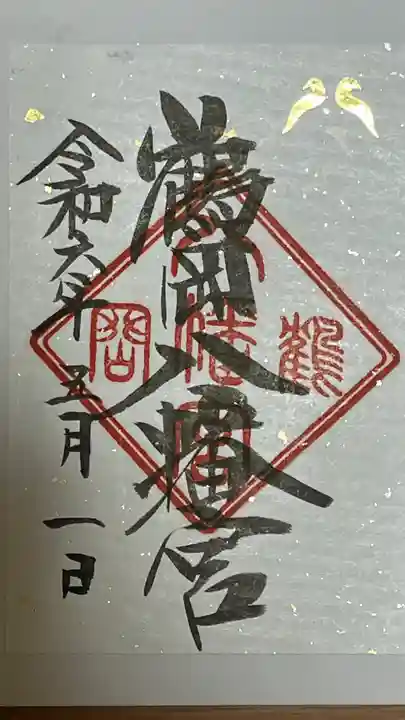 鶴岡八幡宮
令和六年五月一日
鶴
岡